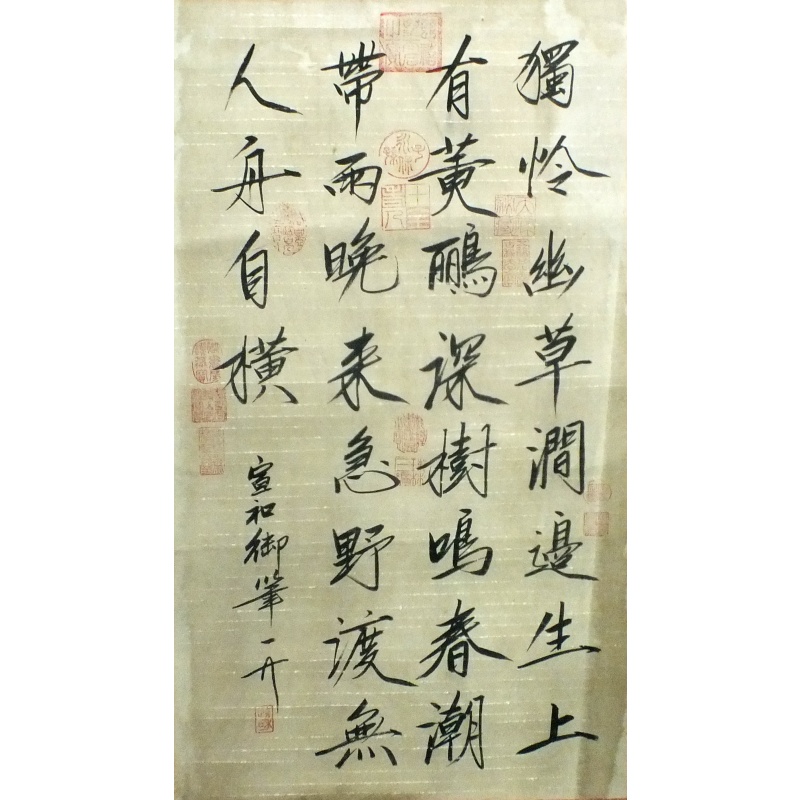 獨怜幽草澗邉生上
有黃鸝深樹鳴春潮
帶雨晚来急野渡無
人舟自橫
宣和御筆